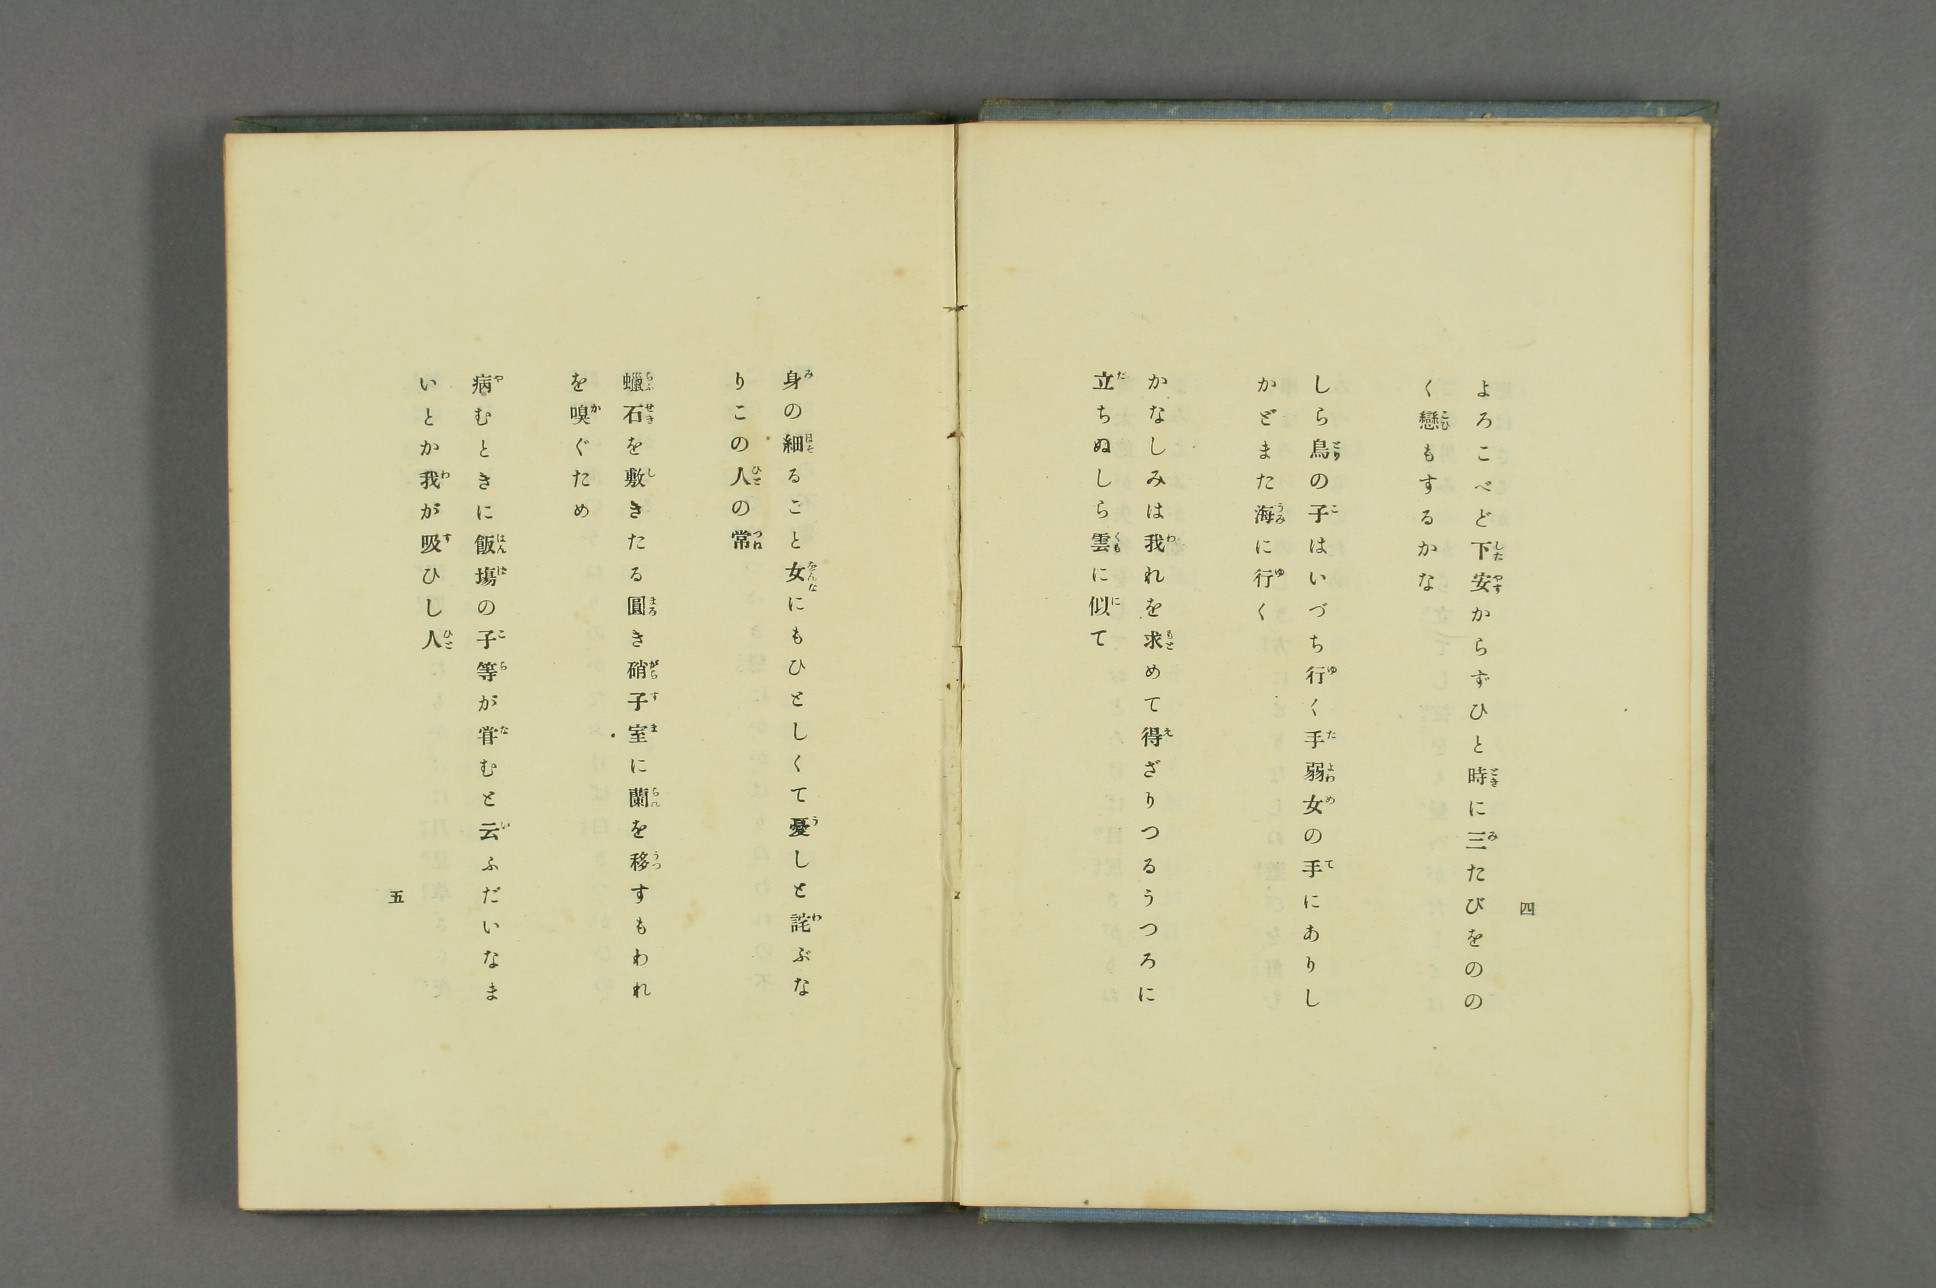 四
よろこべど下安からずひと時に三たびをのの
く戀もするかな
しら鳥の子はいづち行く手弱女の手にありし
かどまた海に行く
かなしみは我れを求めて得ざりつるうつろに
立ちぬしら雲に似て
身の細ること女にもひとしくて憂しと詫ぶな
りこの人の常
蠟石を敷きたる圓き硝子室に蘭を移すもわれ
を嗅ぐため
病むときに飯塲の子等が甞むと云ふだいなま
いとか我が吸ひし人
五